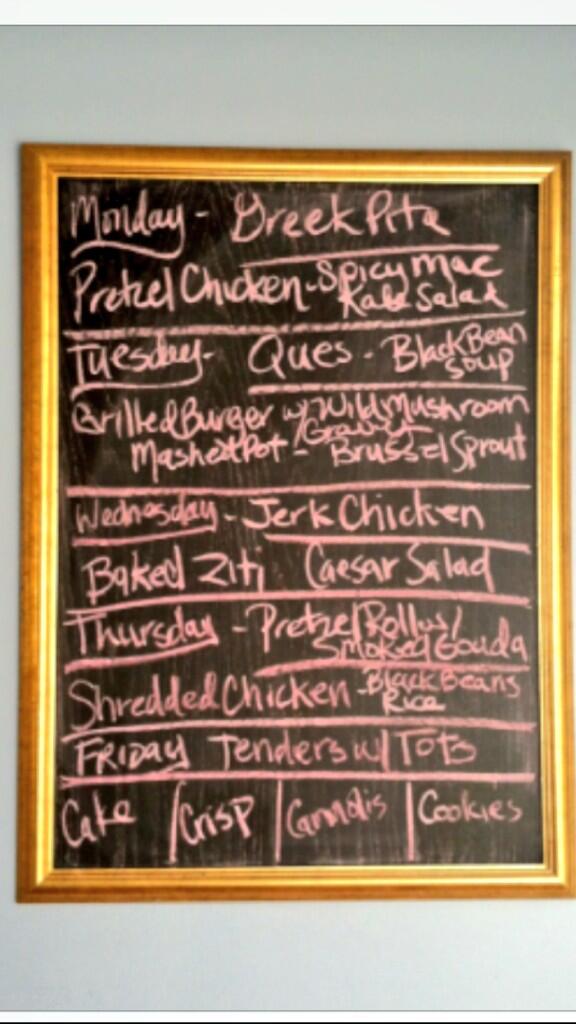 Monday - Greek Pita
Pretzel Chicken - Spicy Mac
Kale Salad
Tuesday - Ques - Black Bean
Soup
Grilled Burger w/ Wild Mushroom
/Gravy
Mashed Pot - Brussel Sprout
Wednesday - Jerk Chicken
Baked Ziti Caesar Salad
Thursday - Pretzel Roll w/
Smoked Gouda
Shredded Chicken - Black Beans
Rice
FRIDAY Tenders w/ Tots
Cake | Crisp | | Cookies